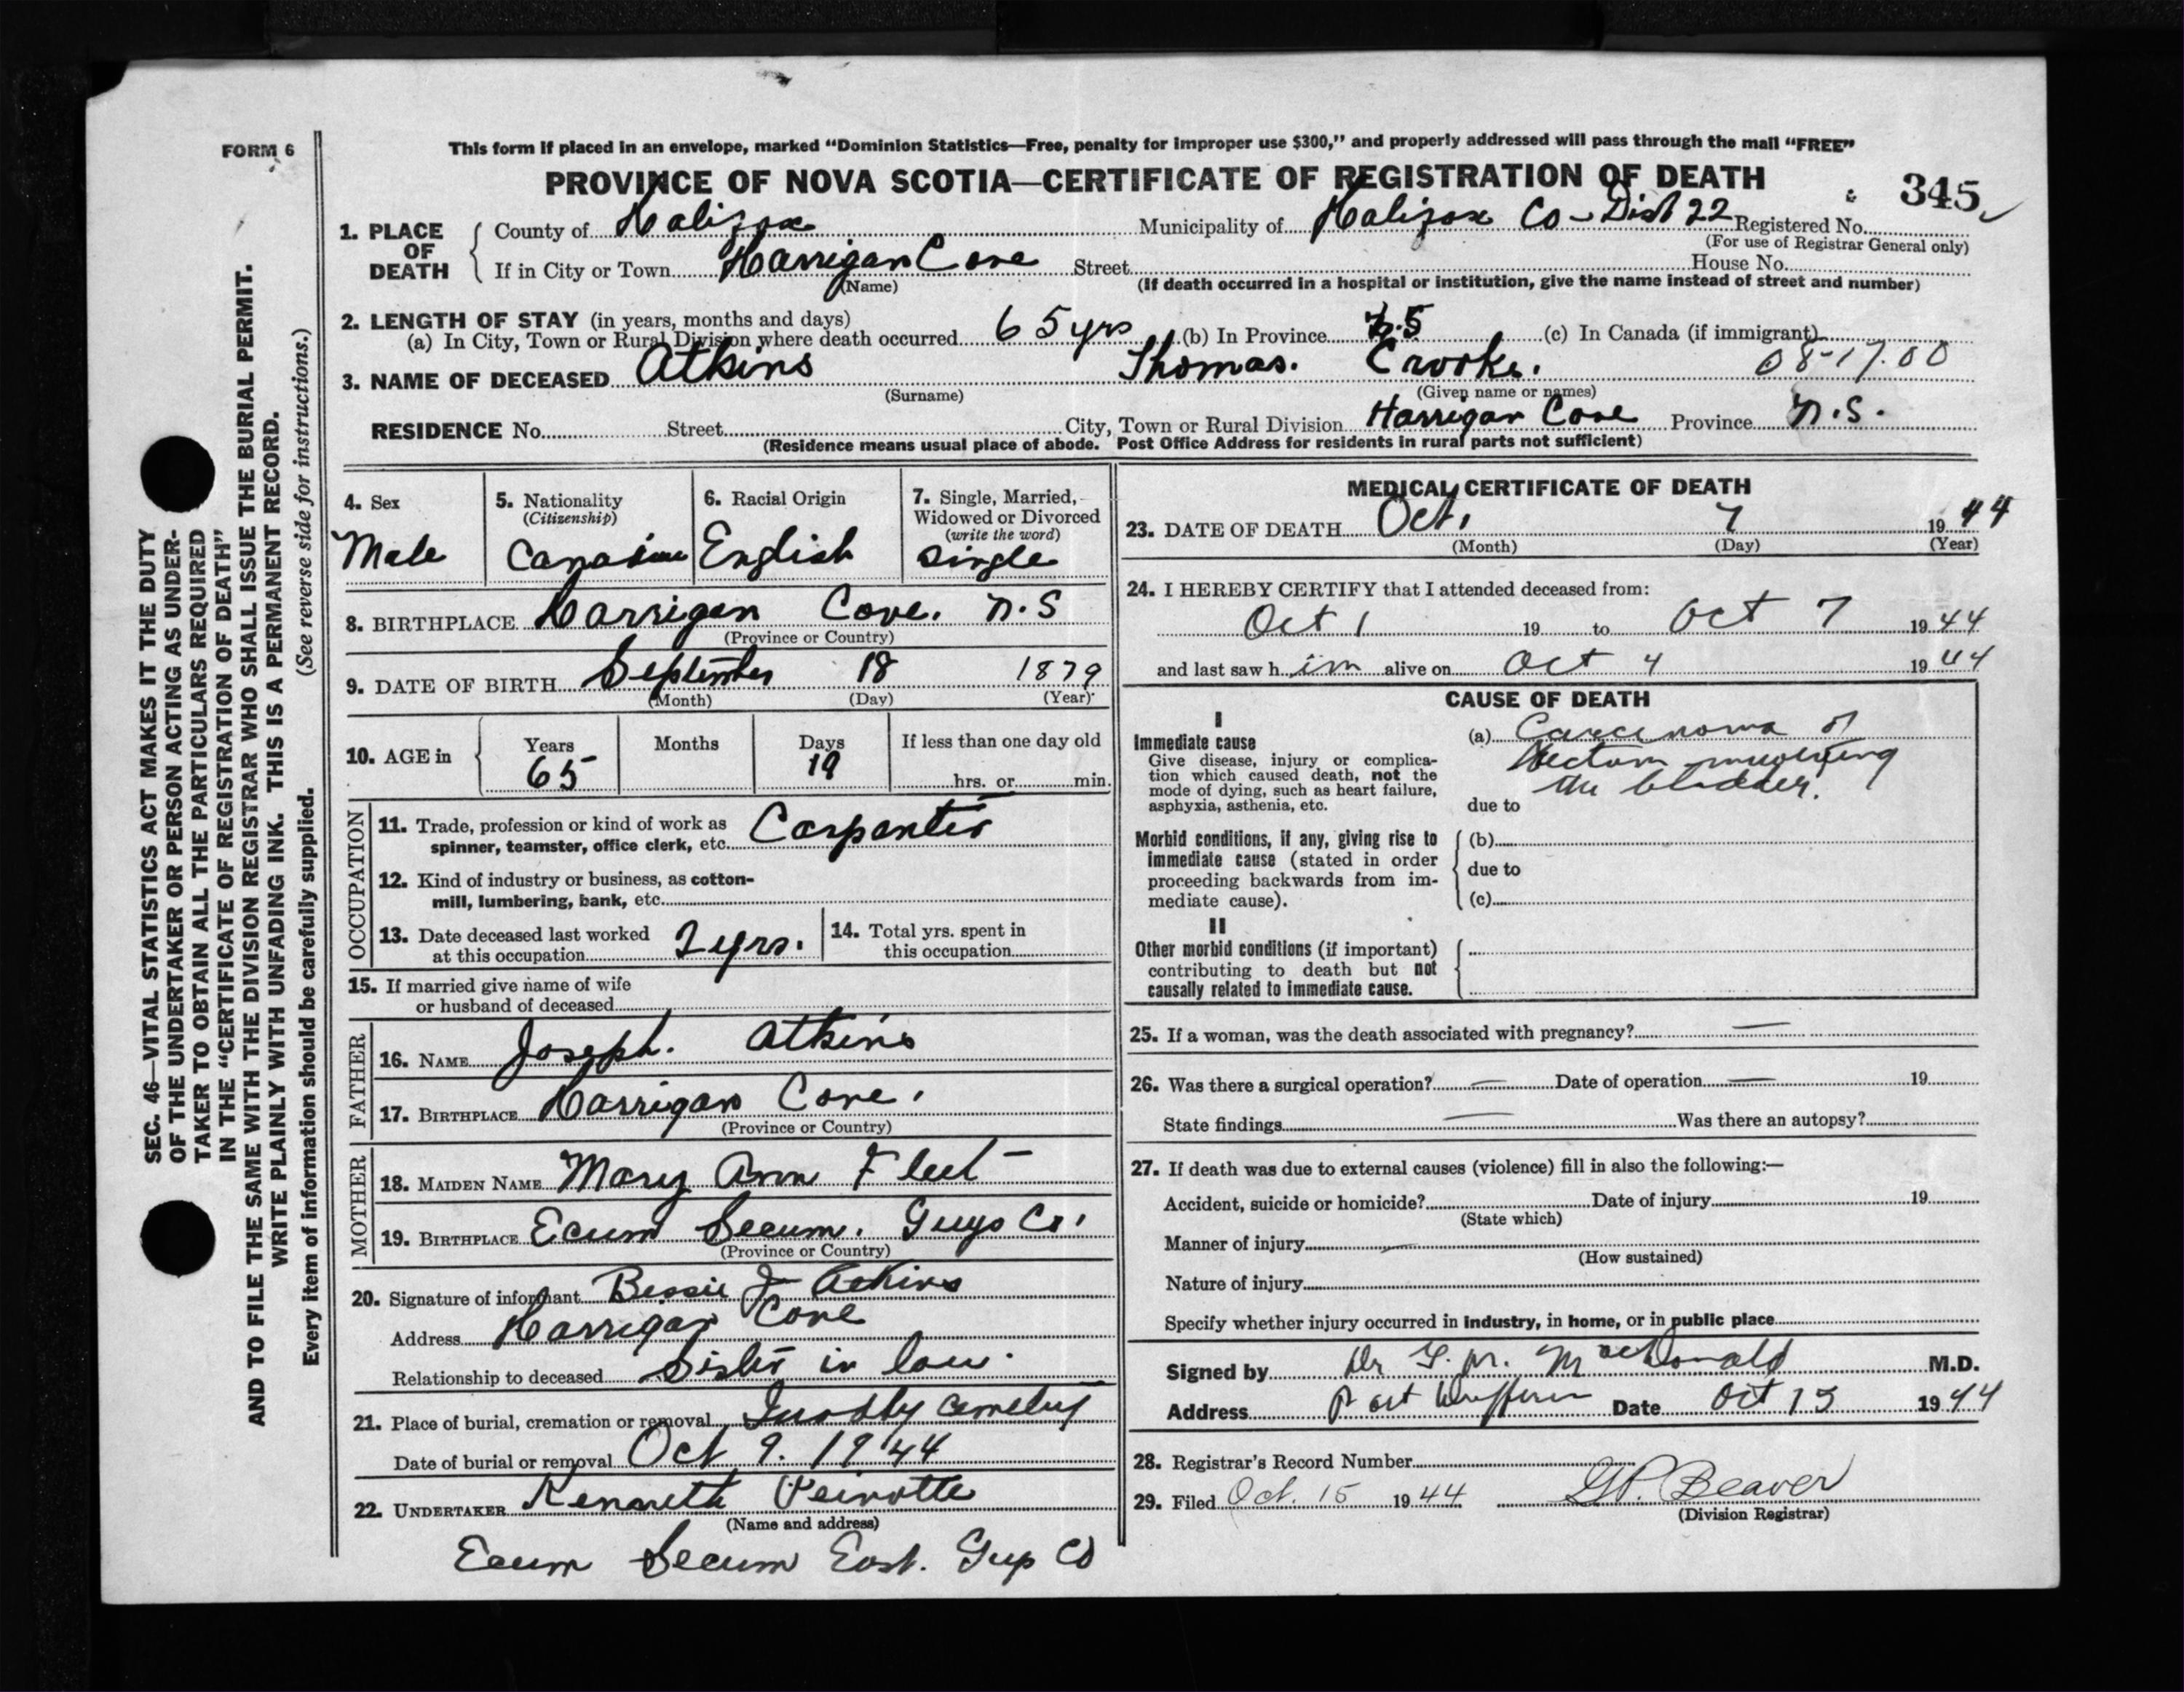 FORM 6
This form if placed in an envelope, marked "Dominion Statistics—Free, penalty for improper use $300," and properly addressed will pass through the mail "FREE"
PROVINCE OF NOVA SCOTIA—CERTIFICATE OF REGISTRATION OF DEATH
345
1. PLACE OF DEATH
County of Halifax Municipality of Halifax Co - Dist 22 Registered No.
(For use of Registrar General only)
If in City or Town Harrigan Cove Street House No.
(Name) (If death occurred in a hospital or institution, give the name instead of street and number)
2. LENGTH OF STAY (in years, months and days)
(a) In City, Town or Rural Division where death occurred 65 yrs (b) In Province N.S (c) In Canada (if immigrant)
3. NAME OF DECEASED Atkins Thomas. Crooke. 08-17.00
(Surname) (Given name or names)
RESIDENCE No. Street City, Town or Rural Division Harrigan Cove Province N.S.
(Residence means usual place of abode. Post Office Address for residents in rural parts not sufficient)
4. Sex
Male
5. Nationality
(Citizenship)
Canadian
6. Racial Origin
English
7. Single, Married,
Widowed or Divorced
(write the word)
Single
8. BIRTHPLACE Harrigan Cove. N.S
(Province or Country)
9. DATE OF BIRTH September 18 1879
(Month) (Day) (Year)
10. AGE in
Years Months Days If less than one day old
65 19 hrs. or min.
OCCUPATION
11. Trade, profession or kind of work as
spinner, teamster, office clerk, etc. Carpenter
12. Kind of industry or business, as cotton-
mill, lumbering, bank, etc.
13. Date deceased last worked
at this occupation 2 yrs.
14. Total yrs. spent in
this occupation
15. If married give name of wife
or husband of deceased
FATHER
16. NAME Joseph. Atkins
17. BIRTHPLACE Harrigan Cove.
(Province or Country)
MOTHER
18. MAIDEN NAME Mary Ann Fleet
19. BIRTHPLACE Ecum Secum. Guys Co.
(Province or Country)
20. Signature of informant Bessie J Atkins
Address Harrigan Cove
Relationship to deceased Sister in law.
21. Place of burial, cremation or removal cemetery
Date of burial or removal Oct 9. 1944
22. UNDERTAKER Kenneth
(Name and address)
Ecum Secum East. Guy Co
MEDICAL CERTIFICATE OF DEATH
23. DATE OF DEATH Oct. 7 1944
(Month) (Day) (Year)
24. I HEREBY CERTIFY that I attended deceased from:
Oct 1 19 to Oct 7 1944
and last saw him alive on Oct 4 1944
CAUSE OF DEATH
I
Immediate cause
Give disease, injury or complica-
tion which caused death, not the
mode of dying, such as heart failure,
asphyxia, asthenia, etc.
(a) Carcinoma of
Rectum involving
the bladder.
due to
Morbid conditions, if any, giving rise to
immediate cause (stated in order
proceeding backwards from im-
mediate cause).
(b)
due to
(c)
II
Other morbid conditions (if important)
contributing to death but not
causally related to immediate cause.
25. If a woman, was the death associated with pregnancy? —
26. Was there a surgical operation? — Date of operation — 19
State findings — Was there an autopsy?
27. If death was due to external causes (violence) fill in also the following:—
Accident, suicide or homicide? Date of injury 19
(State which)
Manner of injury
(How sustained)
Nature of injury
Specify whether injury occurred in industry, in home, or in public place
Signed by Dr MacDonald M.D.
Address Port Dufferin Date Oct 13 1944
28. Registrar's Record Number
29. Filed Oct. 15 1944 G.P. Beaver
(Division Registrar)
SEC. 46—VITAL STATISTICS ACT MAKES IT THE DUTY
OF THE UNDERTAKER OR PERSON ACTING AS UNDER-
TAKER TO OBTAIN ALL THE PARTICULARS REQUIRED
IN THE "CERTIFICATE OF REGISTRATION OF DEATH"
AND TO FILE THE SAME WITH THE DIVISION REGISTRAR WHO SHALL ISSUE THE BURIAL PERMIT.
WRITE PLAINLY WITH UNFADING INK. THIS IS A PERMANENT RECORD.
Every item of information should be carefully supplied. (See reverse side for instructions.)